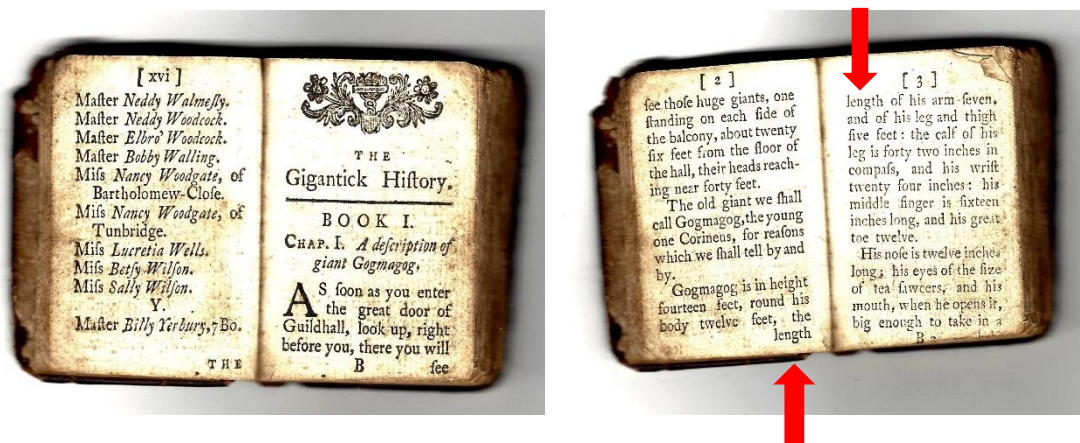 [ xvi ]
Maſter Neddy Walmeſly.
Maſter Neddy Woodcock.
Maſter Elbro' Woodcock.
Maſter Bobby Walling.
Miſs Nancy Woodgate, of
Bartholomew-Cloſe.
Miſs Nancy Woodgate, of
Tunbridge.
Miſs Lucretia Wells.
Miſs Betſy Wilſon.
Miſs Sally Wilſon.
Y.
Maſter Billy Yerbury, 7 Bo.
THE
THE
Gigantick Hiſtory.
BOOK I.
CHAP. I. A deſcription of
giant Gogmagog.
AS ſoon as you enter
the great door of
Guildhall, look up, right
before you, there you will
B ſee
[ 2 ]
ſee thoſe huge giants, one
ſtanding on each ſide of
the balcony, about twenty
ſix feet from the floor of
the hall, their heads reach-
ing near forty feet.
The old giant we ſhall
call Gogmagog, the young
one Corinens, for reaſons
which we ſhall tell by and
by.
Gogmagog is in height
fourteen feet, round his
body twelve feet, the
length
[ 3 ]
length of his arm ſeven,
and of his leg and thigh
five feet : the calf of his
leg is forty two inches in
compaſs, and his wriſt
twenty four inches : his
middle finger is ſixteen
inches long, and his great
toe twelve.
His noſe is twelve inches
long; his eyes of the ſize
of tea ſawcers, and his
mouth, when he opens it,
big enough to take in a
B 2